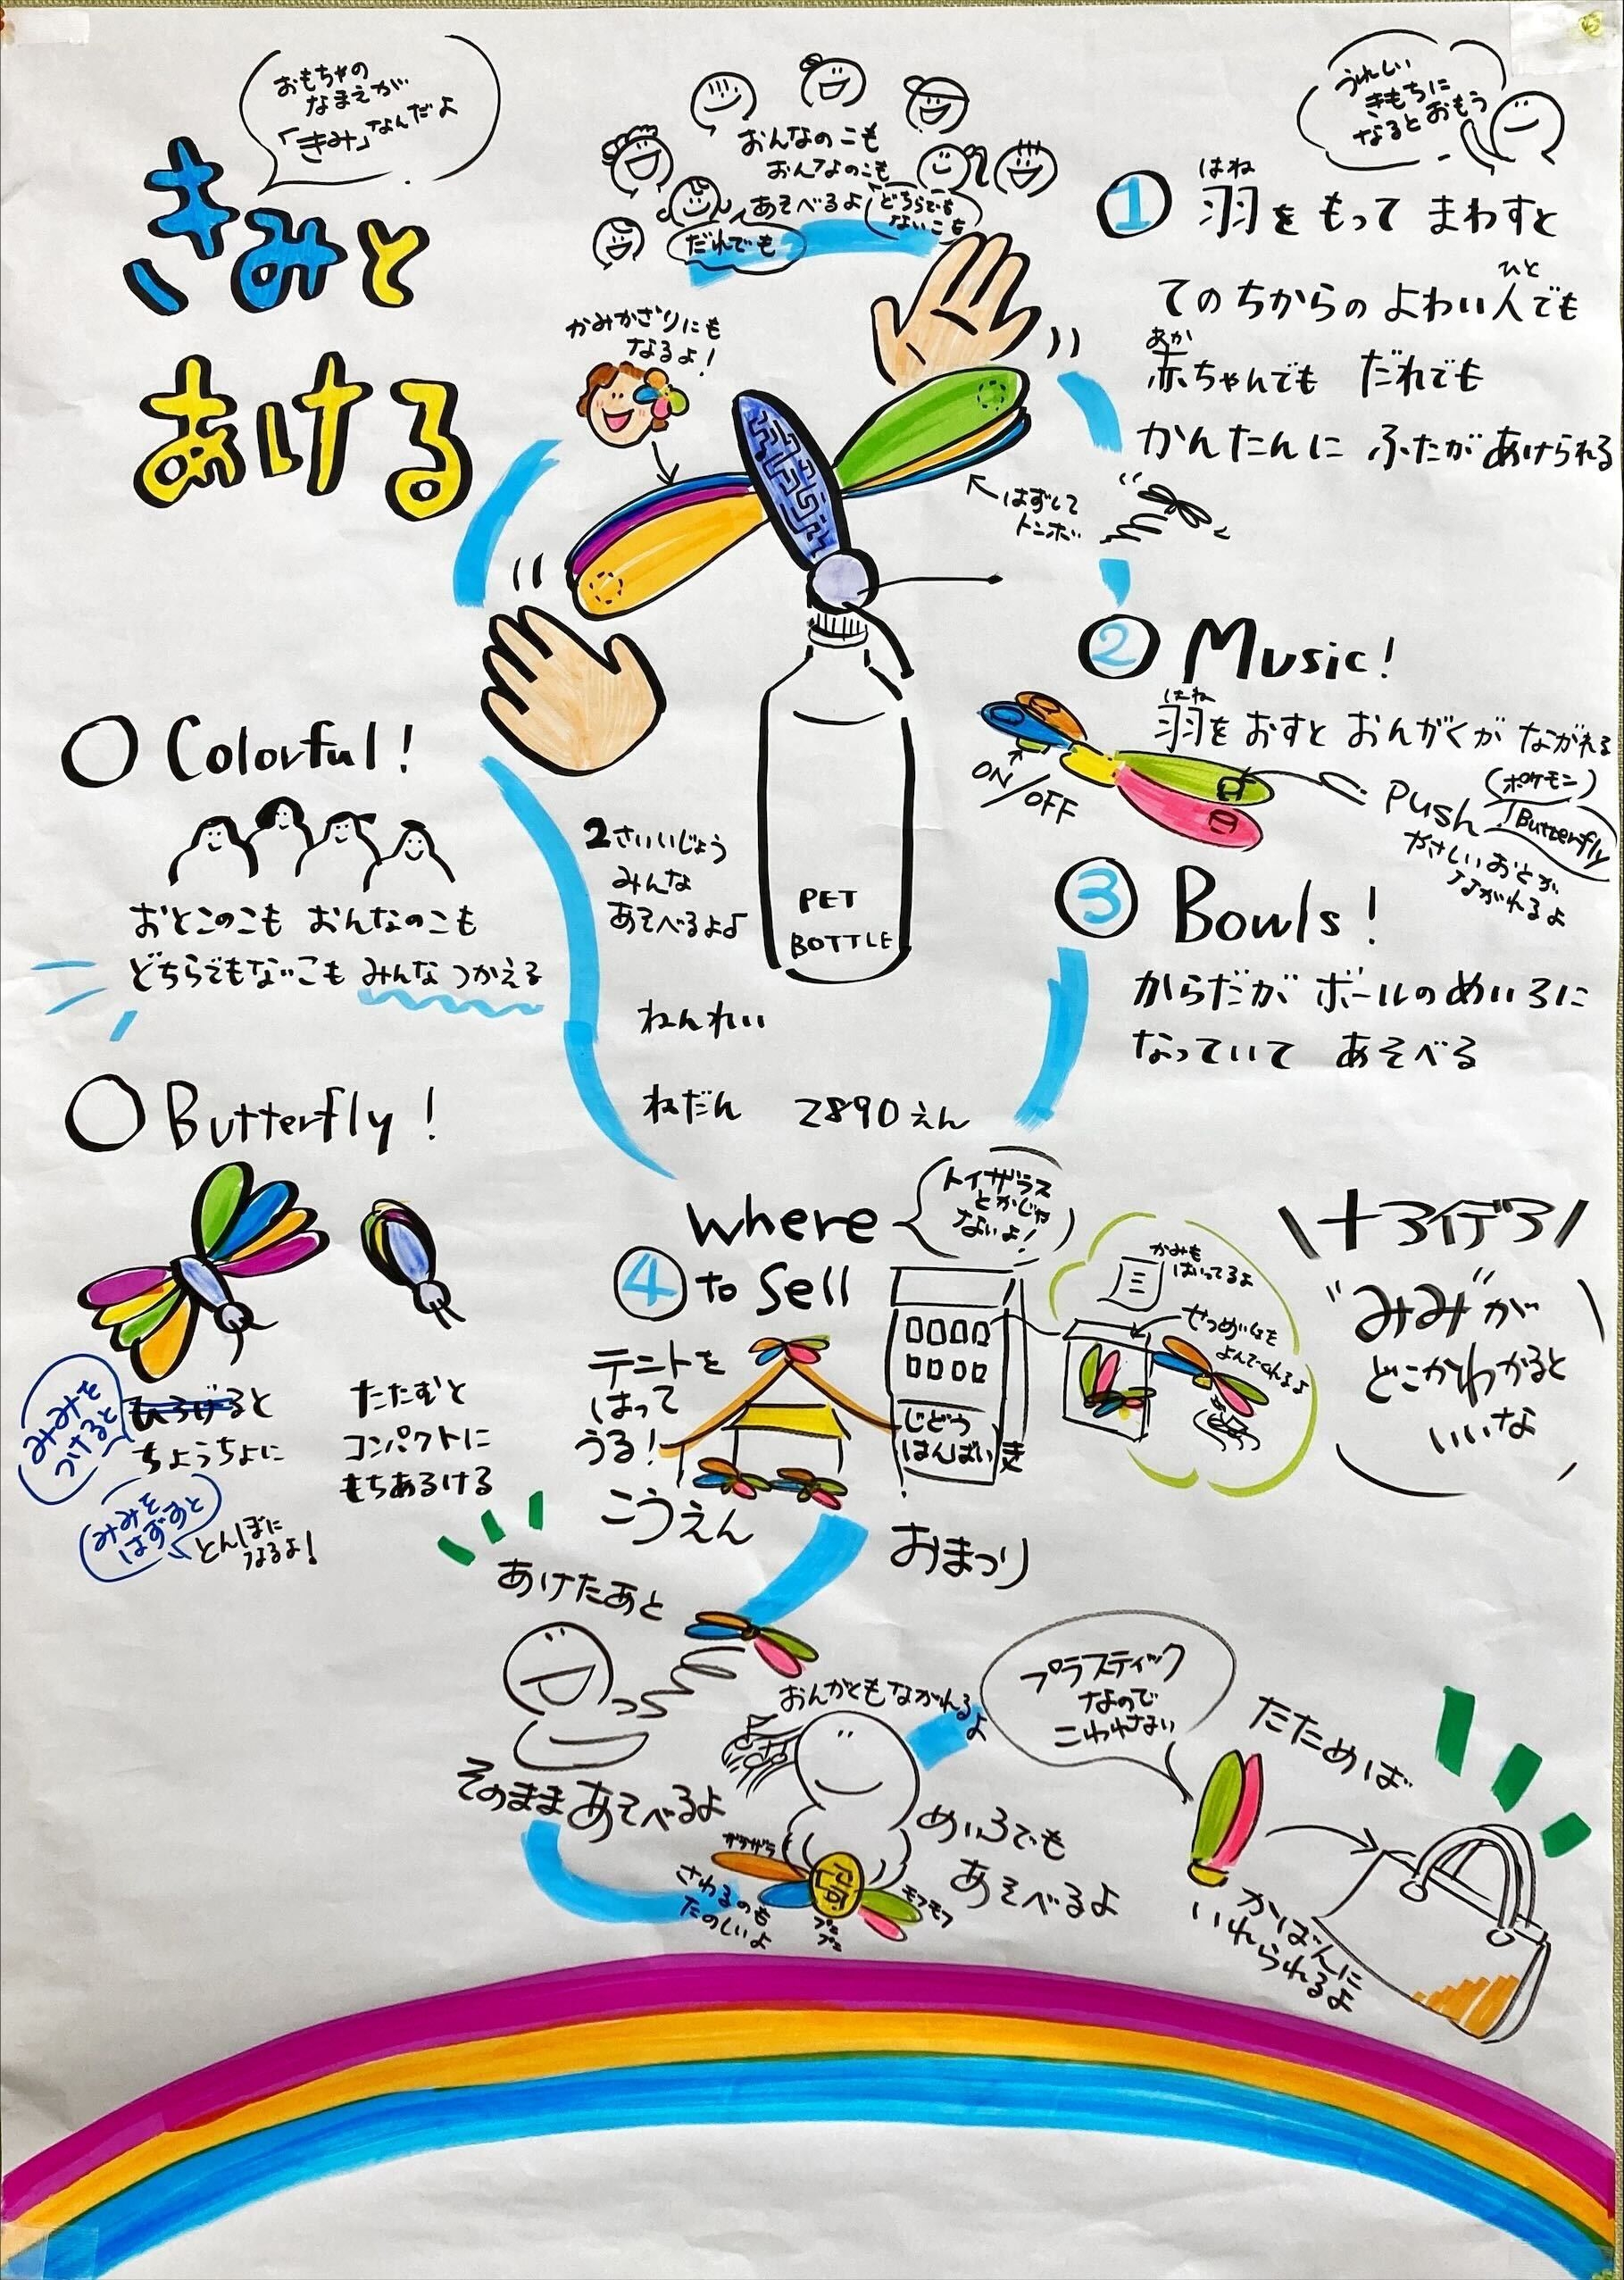 おもちゃの
なまえが
「きみ」なんだよ
きみと
あける
おんなのこも
おんなのこも
あそべるよ
どちらでも
ないこも
だれでも
うれしい
きもちに
なるとおもう
はね
① 羽をもってまわすと
ひと
てのちからのよわい人でも
あか
赤ちゃんでも だれでも
かんたんに ふたがあけられる
かみかざりにも
なるよ!
はずして
トンボ
② Music!
はね
羽をおすと おんがくが ながれる
ON/OFF
Push
(ポケモン)
Butterfly
やさしいおとが
ながれるよ
○ Colorful!
おとこのこも おんなのこも
どちらでもないこも みんなつかえる
2さいいじょう
みんな
あそべるよ♪
PET
BOTTLE
ねんれい
ねだん 2890えん
③ Bowls!
からだが ボールのめいろに
なっていて あそべる
○ Butterfly!
みみを
つけると
ひろげると
ちょうちょに
みみを
はずすと
とんぼに
なるよ!
たたむと
コンパクトに
もちあるける
where
④ to Sell
トイザラス
とかじゃ
ないよ!
テントを
はって
うる!
こうえん
じどう
はんばいき
おまつり
かみも
はいってるよ
せつめいを
よんでくれるよ
+アイデア
"みみ"が
どこかわかると
いいな
あけたあと
そのままあそべるよ
おんがくもながれるよ
めいろでも
あそべるよ
ガラガラ
さわるのも
たのしいよ
モフモフ
プラスティック
なので
こわれない
たためば
かばんに
いれられるよ